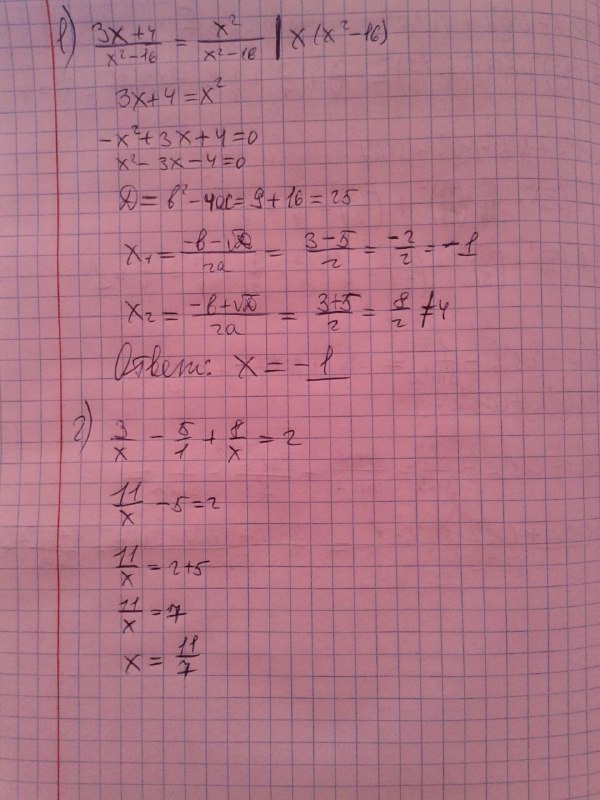 1) (3x+4)/(x²-16) = x²/(x²-16) | x (x²-16)
3x+4=x²
-x²+3x+4=0
x²-3x-4=0
D=b²-4ac=9+16=25
x₁ = (-b-√D)/2a = (3-5)/2 = -2/2 = -1
x₂ = (-b+√D)/2a = (3+5)/2 = 8/2 ≠4
Ответ: x = -1
2) 3/x - 5/1 + 8/x = 2
11/x - 5=2
11/x = 2+5
11/x = 7
x = 11/7